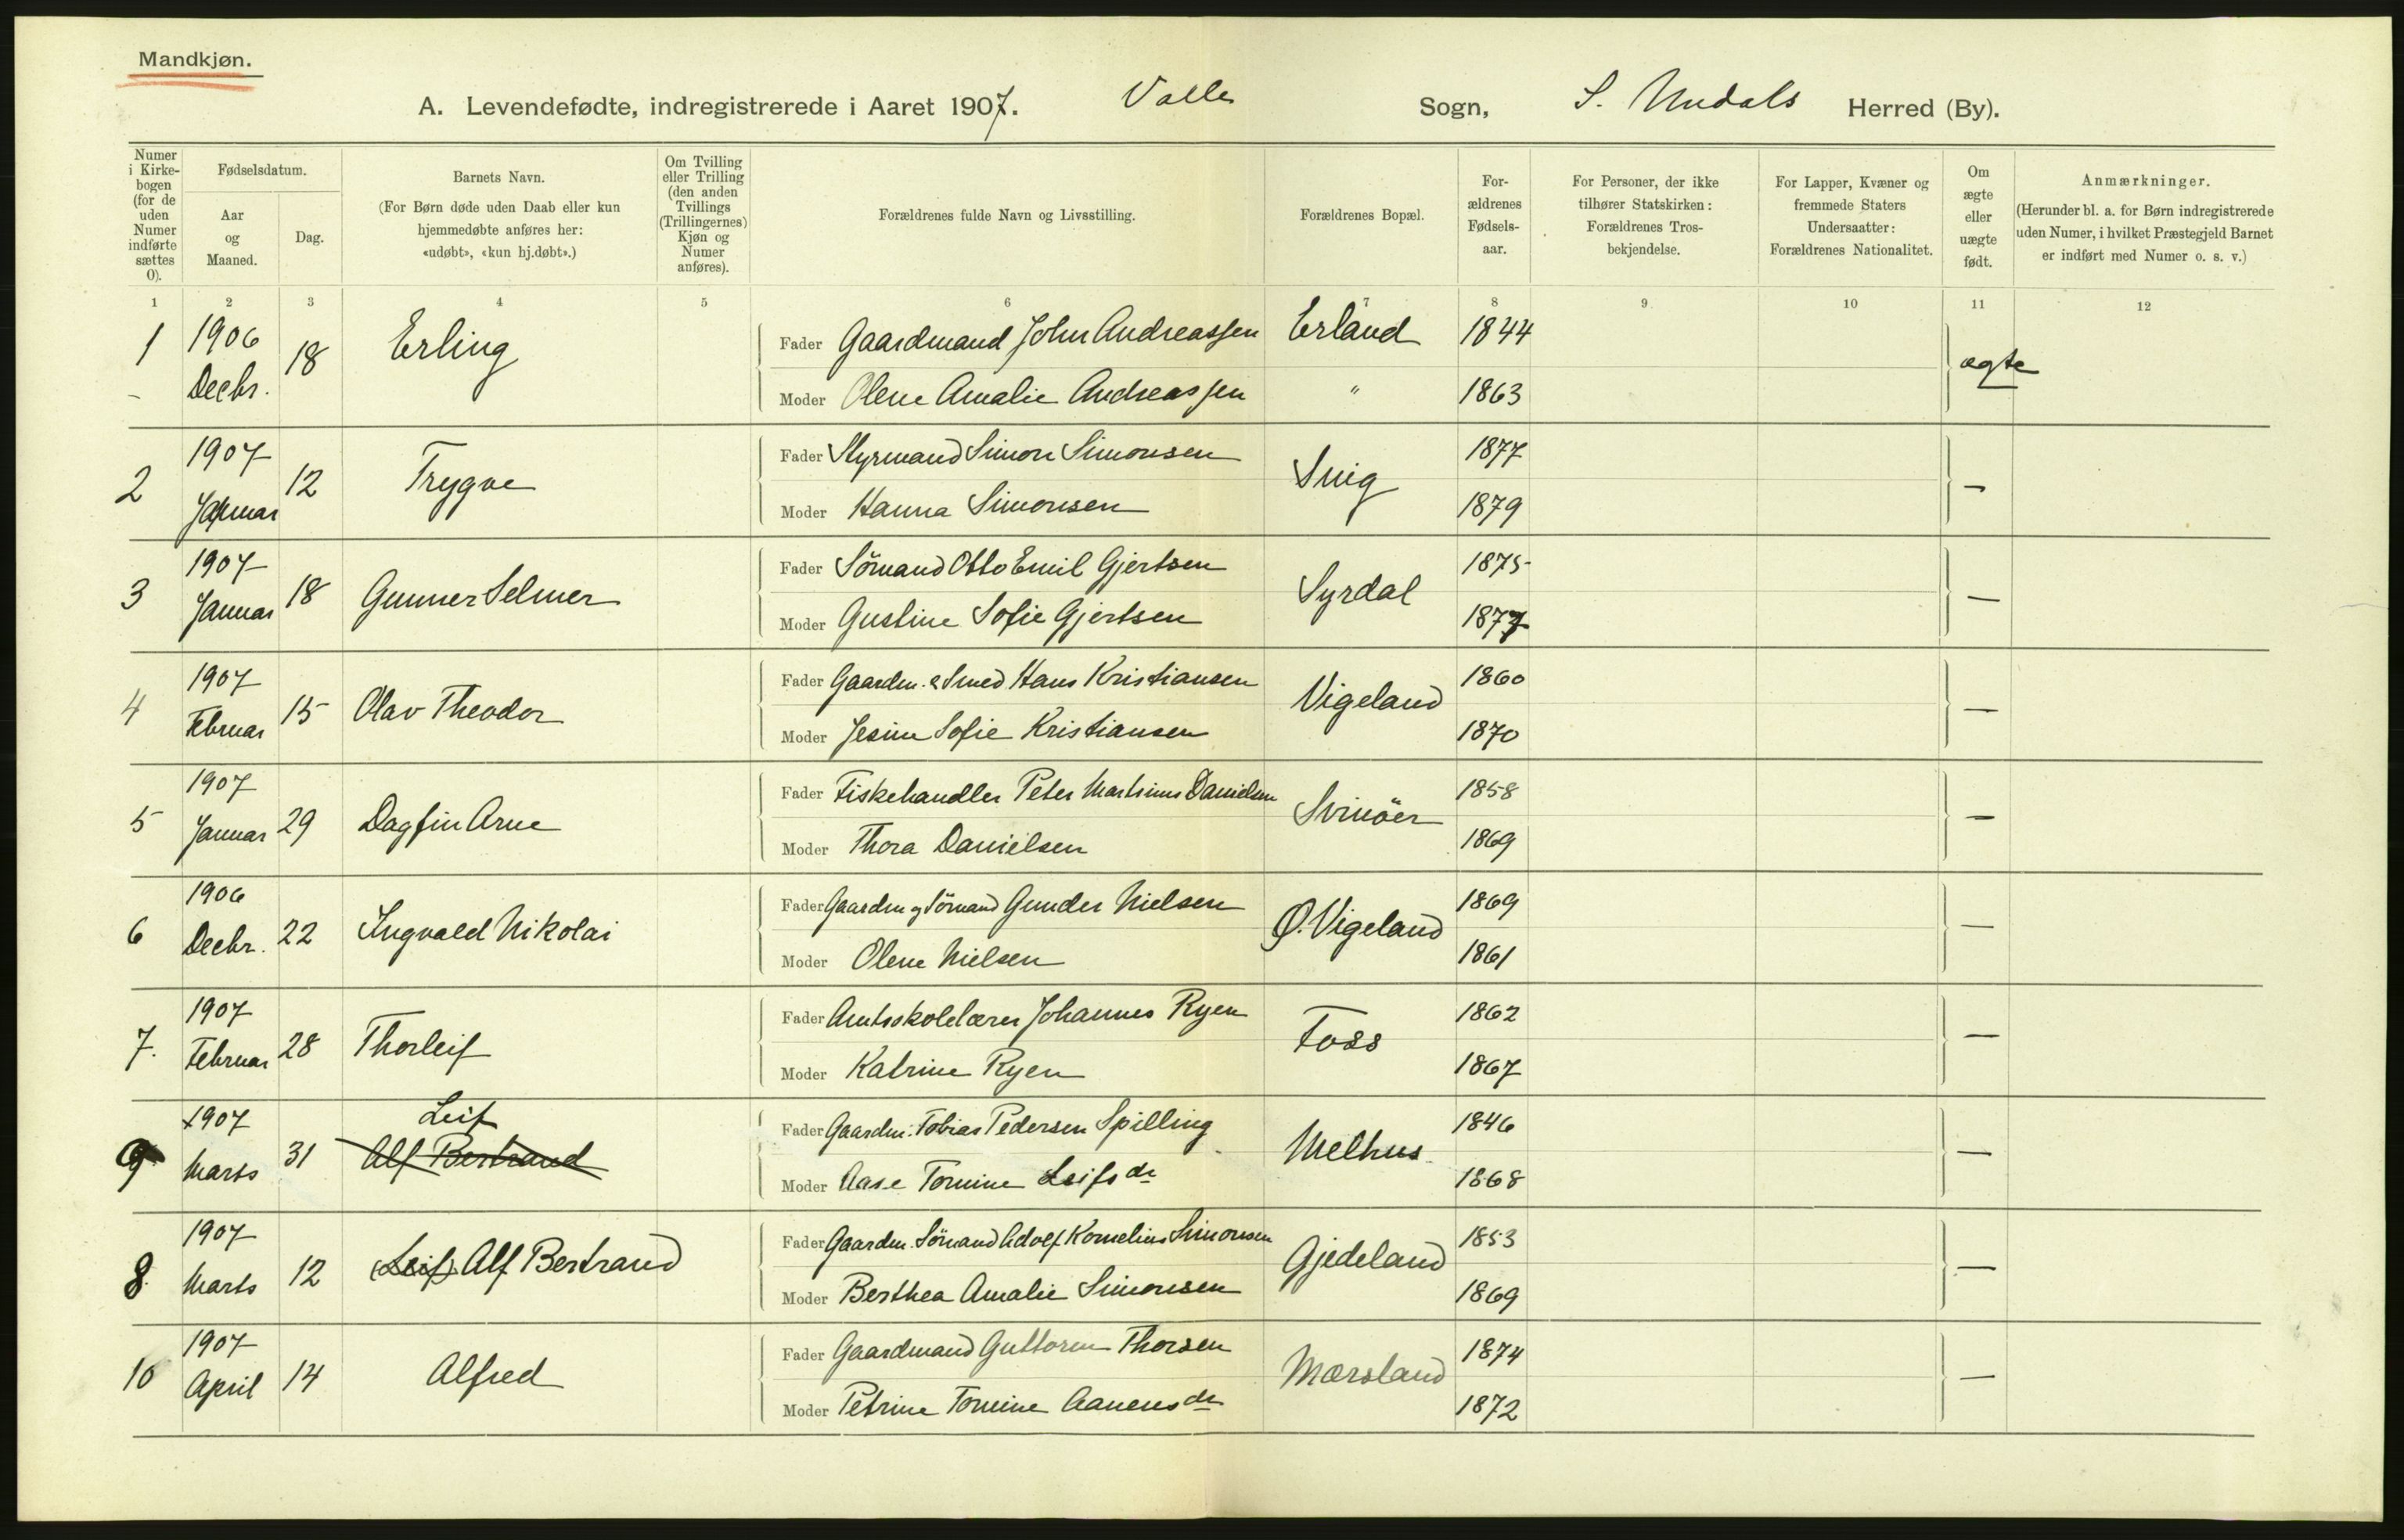 Mandkjøn.
A. Levendefødte, indregistrerede i Aaret 1907. Valle Sogn, S. Undals Herred (By).
Numer i Kirkebogen (for de uden Numer indførte sættes 0).
Fødselsdatum.
Aar og Maaned.
Dag.
Barnets Navn.
(For Børn døde uden Daab eller kun hjemmedøbte anføres her: «udøbt», «kun hj.døbt».)
Om Tvilling eller Trilling (den anden Tvillings (Trillingernes) Kjøn og Numer anføres).
Forældrenes fulde Navn og Livsstilling.
Forældrenes Bopæl.
Forældrenes Fødselsaar.
For Personer, der ikke tilhører Statskirken: Forældrenes Trosbekjendelse.
For Lapper, Kvæner og fremmede Staters Undersaatter: Forældrenes Nationalitet.
Om ægte eller uægte født.
Anmærkninger.
(Herunder bl. a. for Børn indregistrerede uden Numer, i hvilket Præstegjeld Barnet er indført med Numer o. s. v.)
1 2 3 4 5 6 7 8 9 10 11 12
1 1906 Decbr. 18 Erling Fader Gaardmand John Andreassen Erland 1844 ægte
Moder Olene Amalie Andreassen " 1863
2 1907 Januar 12 Trygve Fader Styrmand Simon Simonsen Snig 1877 —
Moder Hanna Simonsen 1879
3 1907 Januar 18 Gunner Selmer Fader Sömand Otto Emil Gjertsen Syrdal 1875 —
Moder Gustine Sofie Gjertsen 1877
4 1907 Februar 15 Olav Theodor Fader Gaardm. & Smed Hans Kristiansen Vigeland 1860 —
Moder Jesine Sofie Kristiansen 1870
5 1907 Januar 29 Dagfin Arne Fader Fiskehandler Peter Martinius Danielsen Svinöer 1858 —
Moder Thora Danielsen 1869
6 1906 Decbr. 22 Ingvald Nikolai Fader Gaardm og Sömand Gunder Nielsen Ø. Vigeland 1869 —
Moder Olene Nielsen 1861
7. 1907 Februar 28 Thorleif Fader Amtsskolelærer Johannes Ryen Foss 1862 —
Moder Katrine Ryen 1867
9 1907 Marts 31 Leif Alf Bertrand Fader Gaardm. Tobias Pedersen Spilling Melhus 1846 —
Moder Aase Tomine Leifsdr 1868
8. 1907 Marts 12 (Leif) Alf Bertrand Fader Gaardm. Sömand Adolf Kornelius Simonsen Gjedeland 1853 —
Moder Berthea Amalie Simonsen 1869
10 1907 April 14 Alfred Fader Gaardmand Guttorm Thorsen Mærsland 1874 —
Moder Petrine Tomine Aanensdr 1872